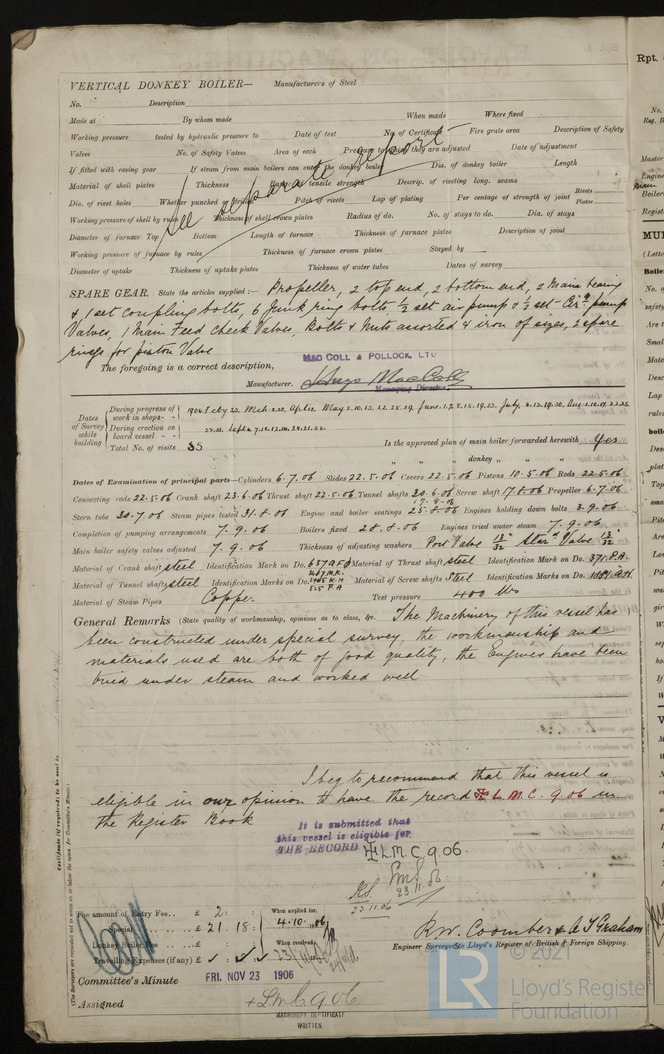 VERTICAL DONKEY BOILER— Manufacturers of Steel
No. Description
Made at By whom made When made Where fixed
Working pressure tested by hydraulic pressure to Date of test No. of Certificate Fire grate area Description of Safety
Valves No. of Safety Valves Area of each Pressure to which they are adjusted Date of adjustment
If fitted with easing gear If steam from main boilers can enter the donkey boiler Dia. of donkey boiler Length
Material of shell plates Thickness Range of tensile strength Descrip. of riveting long. seams
Dia. of rivet holes Whether punched or drilled Pitch of rivets Lap of plating Per centage of strength of joint Rivets Plates
Working pressure of shell by rules Thickness of shell crown plates Radius of do. No. of stays to do. Dia. of stays
Diameter of furnace Top Bottom Length of furnace Thickness of furnace plates Description of joint
Working pressure of furnace by rules Thickness of furnace crown plates Stayed by
Diameter of uptake Thickness of uptake plates Thickness of water tubes Dates of survey
See separate report
SPARE GEAR. State the articles supplied:— Propeller, 2 top end, 2 bottom end, 2 Main bearing
& 1 set coupling bolts, 6 Junk ring bolts ½ set air pump & ½ set Circ. pump
Valves, 1 Main Feed Check Valves, Bolts & Nuts assorted & iron of sizes, 2 spare
rings for piston Valve
The foregoing is a correct description,
MAC COLL & POLLOCK, LTD
Manufacturer. Hugo MacColl
Managing Director
Dates of Survey while building
During progress of work in shops- 1906 Feby 23. Mch. 2.20. Apl. 12. May 2.10.15.22.28.29. June 1.7.8.15.19.23. July 6.12.19.30. Aug. 1.10.17.22.25.
During erection on board vessel - - 28.31. Sept. 4.7.10.12.14.20.21.22.
Total No. of visits 35 Is the approved plan of main boiler forwarded herewith Yes
" " donkey " " "
Dates of Examination of principal parts—Cylinders 6.7.06 Slides 22.5.06 Covers 22.5.06 Pistons 10.5.06 Rods 22.5.06
Connecting rods 22.5.06 Crank shaft 23.6.06 Thrust shaft 22.5.06 Tunnel shafts 30.6.06 Screw shaft 17.8.06 Propeller 6.7.06
Stern tube 30.7.06 Steam pipes tested 31.8.06 Engine and boiler seatings 25.8.06 Engines holding down bolts 3.9.06
Completion of pumping arrangements 7.9.06 Boilers fixed 28.8.06 Engines tried under steam 7.9.06
Main boiler safety valves adjusted 7.9.06 Thickness of adjusting washers Port Valve 13/32" Starᵈ Valve 13/32
Material of Crank shaft steel Identification Mark on Do. 637 A.F.D Material of Thrust shaft steel Identification Mark on Do. 371. P.A.
Material of Tunnel shafts steel Identification Marks on Do. 525 P.A Material of Screw shafts Steel Identification Marks on Do.
Material of Steam Pipes Copper Test pressure 400 lbs
General Remarks (State quality of workmanship, opinions as to class, &c. The Machinery of this vessel has
been constructed under special survey, the workmanship and
materials used are both of good quality, the Engines have been
tried under steam and worked well
I beg to recommend that this vessel is
eligible in our opinion to have the record ✠ L.M.C. 9.06 in
the Register Book
It is submitted that
this vessel is eligible for
THE RECORD ✠ L.M.C 9.06.
23.11.06
23.11.06
The amount of Entry Fee.. £ 2: : When applied for,
Special .. .. £ 21: 18: 4.10.1906
Donkey Boiler Fee .. .. £ : : When received,
Travelling Expenses (if any) £ : :
R.W. Coomber & A T Graham
Engineer Surveyors to Lloyd's Register of British & Foreign Shipping.
Committee's Minute FRI. NOV 23 1906
Assigned + L.m.c. 9.06
MACHINERY CERTIFICATE
WRITTEN.
Certificate (if required) to be sent to
(The Surveyors are requested not to write on or below the space for Committee's Minute.)
Rpt.
© 2021
LR
Lloyd's Register
Foundation